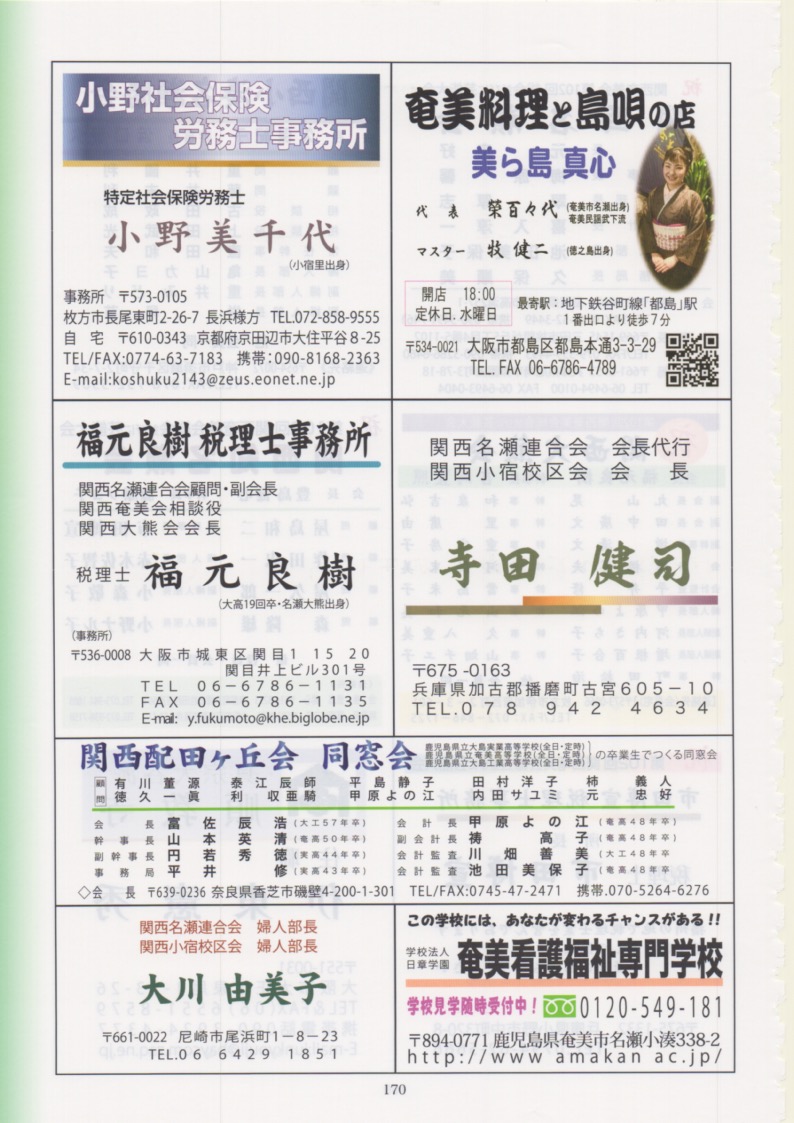 小野社会保険
労務士事務所
特定社会保険労務士
小野美千代
(小宿里出身)
事務所 〒573-0105
枚方市長尾東町2-26-7 長浜様方 TEL.072-858-9555
自 宅 〒610-0343 京都府京田辺市大住平谷8-25
TEL/FAX:0774-63-7183 携帯:090-8168-2363
E-mail:koshuku2143@zeus.eonet.ne.jp
奄美料理と島唄の店
美ら島 真心
代 表 榮百々代 (奄美市名瀬出身)
奄美民謡武下流
マスター 牧 健二 (徳之島出身)
開店 18:00
定休日. 水曜日
最寄駅:地下鉄谷町線「都島」駅
1番出口より徒歩7分
〒534-0021 大阪市都島区都島本通3-3-29
TEL. FAX 06-6786-4789
福元良樹 税理士事務所
関西名瀬連合会顧問・副会長
関西奄美会相談役
関西大熊会会長
税理士 福元良樹
(大高19回卒・名瀬大熊出身)
(事務所)
〒536-0008 大阪市城東区関目1 15 20
関目井上ビル301号
TEL 06-6786-1131
FAX 06-6786-1135
E-mail: y.fukumoto@khe.biglobe.ne.jp
関西名瀬連合会 会長代行
関西小宿校区会 会 長
寺田 健司
〒675-0163
兵庫県加古郡播磨町古宮605-10
TEL.078 942 4634
関西配田ヶ丘会 同窓会
鹿児島県立大島実業高等学校(全日・定時)
鹿児島県立奄美高等学校(全日・定時)
鹿児島県立大島工業高等学校(全日・定時)
の卒業生でつくる同窓会
顧問 有川董源 泰江辰師 平島静子 田村洋子 柿 義人
徳久一眞 利 収亜騎 甲原よの江 内田ナユミ 元 忠好
会長 富 佐 辰 浩 (大工57年卒)
幹事長 山 本 英 清 (奄高50年卒)
副幹事長 円 若 秀 徳 (実高44年卒)
事務局 平 井 修 (実高43年卒)
会計長 甲原よの江 (奄高48年卒)
副会計長 祷 高 子 (奄高48年卒)
会計監査 川 畑 善 美 (大工48年卒
会計監査 池田美保子 (奄高48年卒)
◇会 長 〒639-0236 奈良県香芝市磯壁4-200-1-301 TEL/FAX:0745-47-2471 携帯.070-5264-6276
関西名瀬連合会 婦人部長
関西小宿校区会 婦人部長
大川 由美子
〒661-0022 尼崎市尾浜町1-8-23
TEL.06 6429 1851
この学校には、あなたが変わるチャンスがある!!
学校法人
日章学園
奄美看護福祉専門学校
学校見学随時受付中! 0120-549-181
〒894-0771 鹿児島県奄美市名瀬小湊338-2
http://www amakan ac.jp/
170